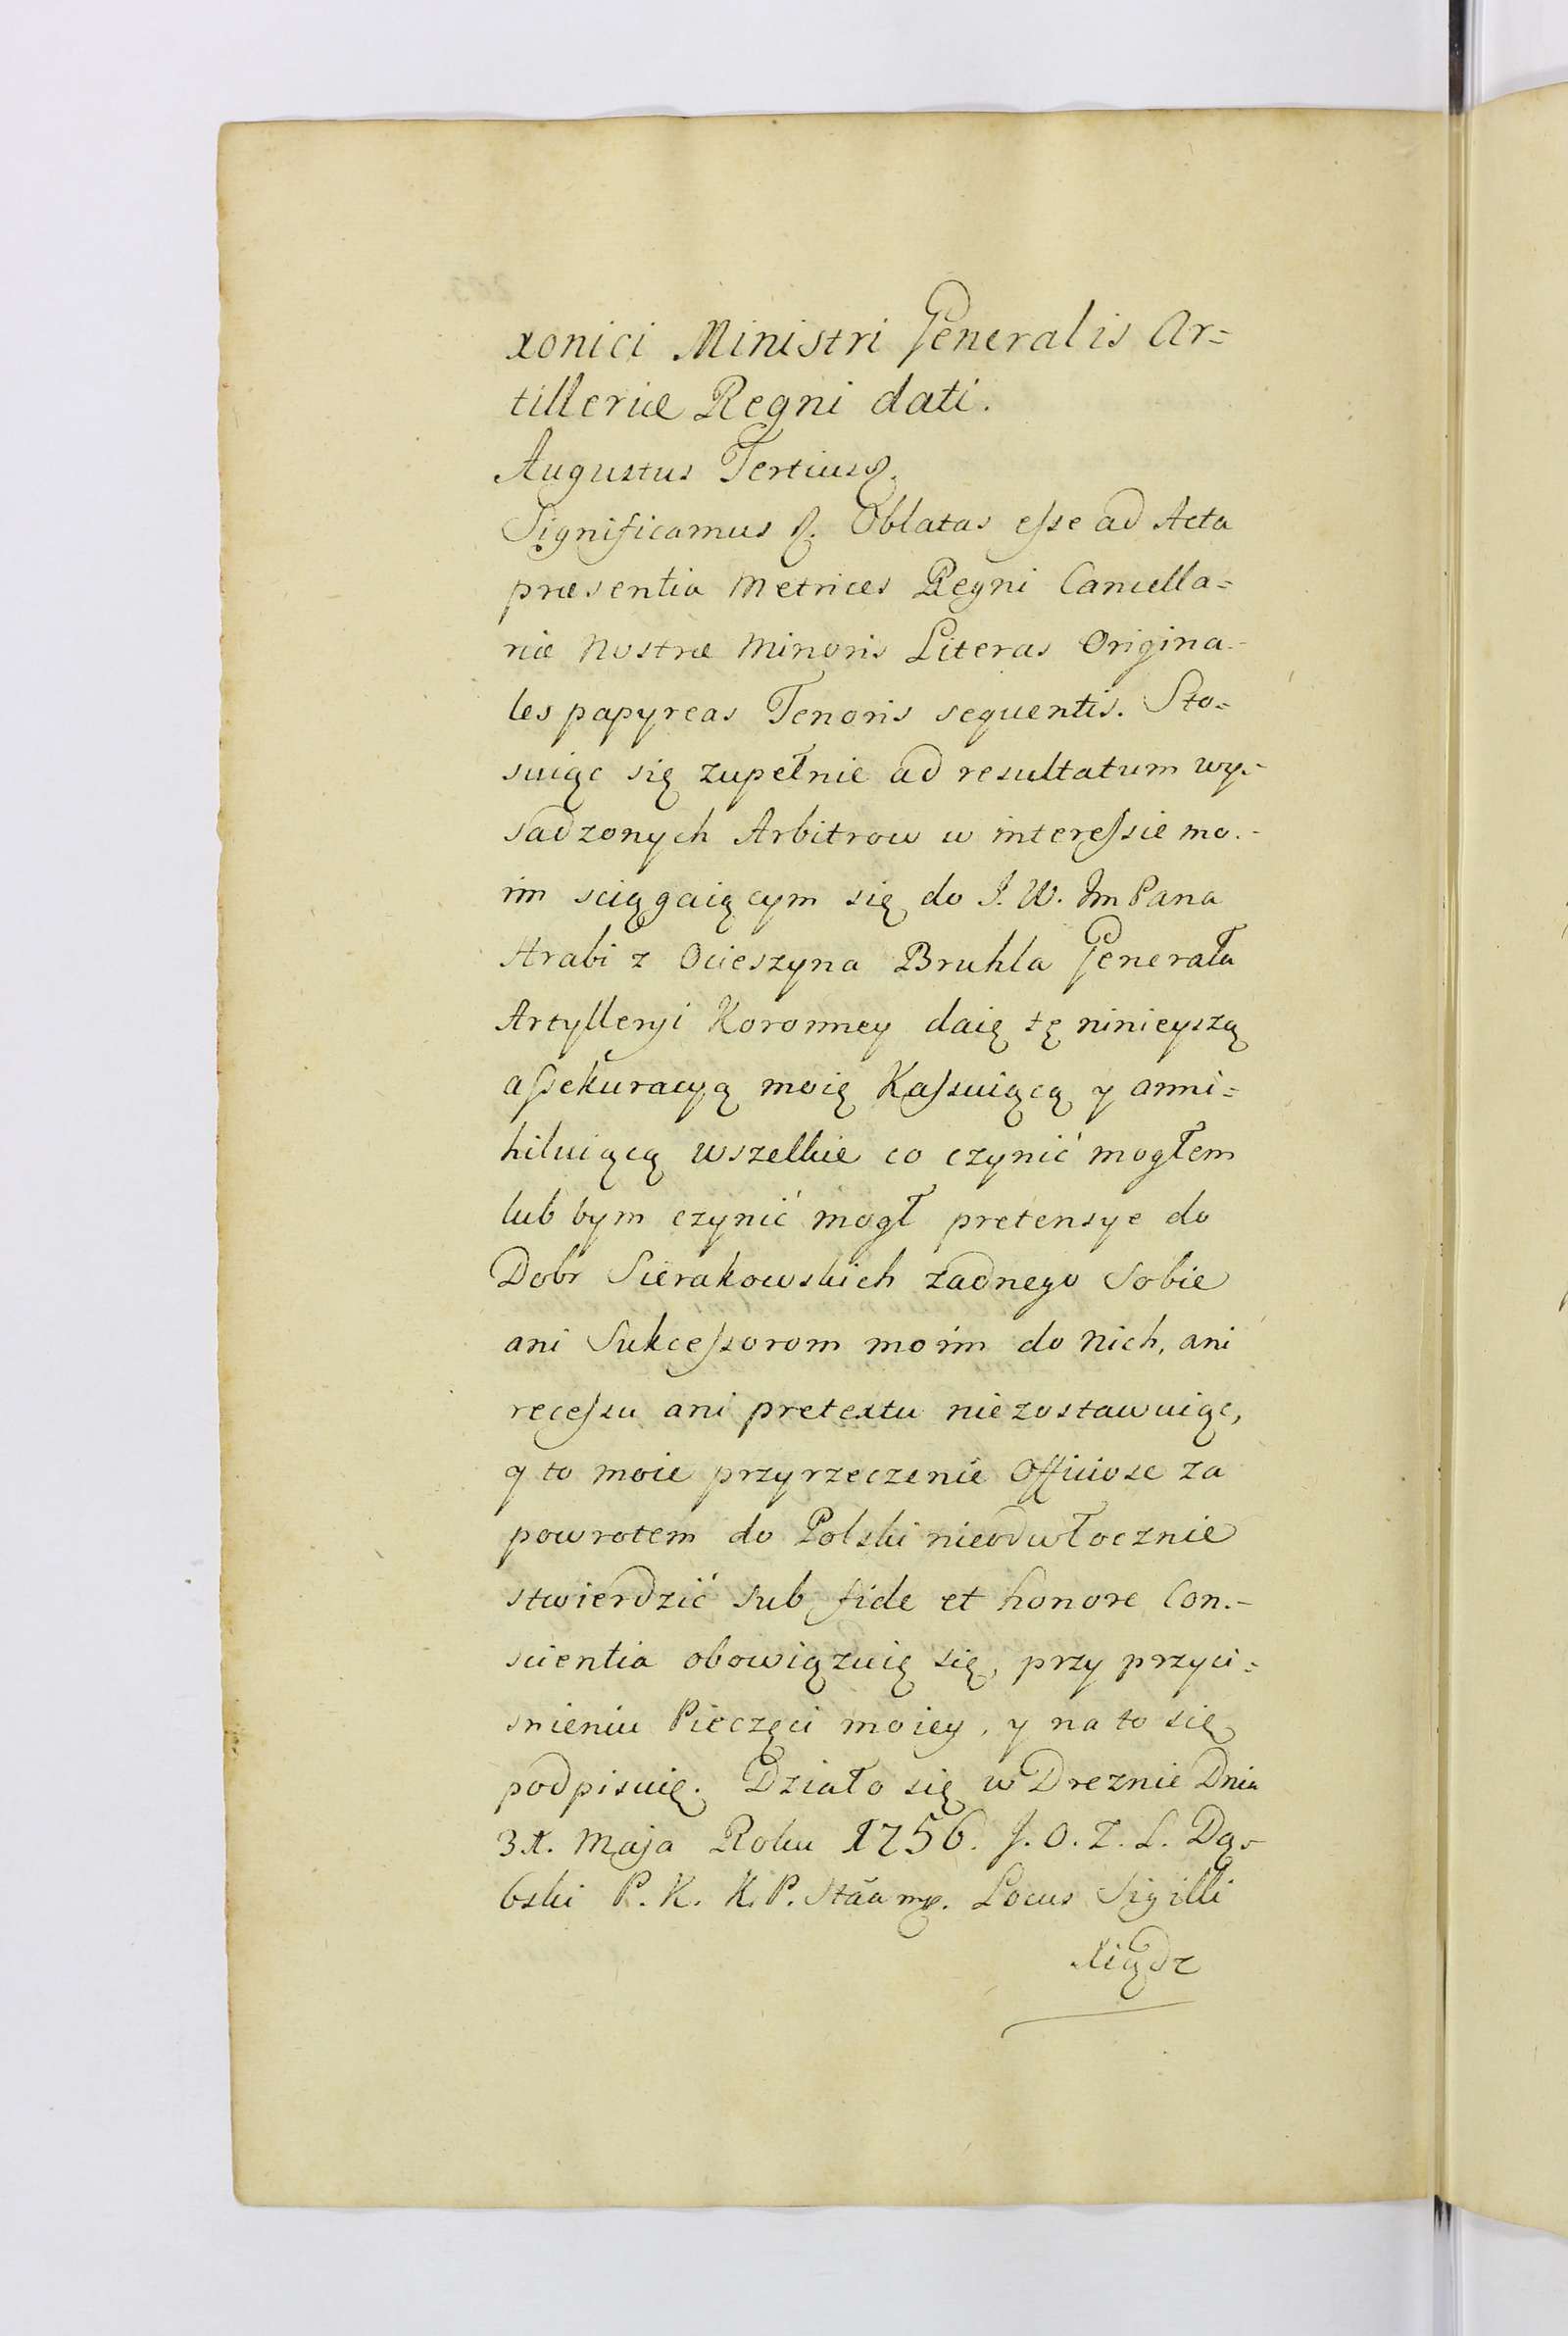 xonici Ministri Generalis Ar=
tilleriæ Regni dati.
Augustus Tertius &.
Significamus &. Oblatas eſse ad Acta
præsentia Metrices Regni Cancella=
riæ Nostræ Minoris Literas Origina-
les papyreas Tenoris sequentis. Sto-
suiąc się zupełnie ad resultatum wy-
sadzonych Arbitrow w intereſsie mo-
im sciągaiącym się do J. W. Jm Pana
Hrabi z Ocieszyna Bruhla Generała
Artylleryi Koronney daię tę ninieyszą
aſsekuracyą moię Kaſsuiącą y anni=
hiluiącą wszelkie co czynić mogłem
lub bym czynić mogł pretensye do
Dobr Sierakowskich żadnego Sobie
ani Sukceſsorom moim do nich, ani
receſsu ani pretextu niezostawuiąc,
y to moie przyrzeczenie Officiose za
powrotem do Polski nieodwłocznie
stwierdzić sub fide et honore Con-
scientia obowiązuię się, przy przyci=
snieniu Pieczęci moiey, y na to się
podpisuię. Działo się w Dreznie Dnia
31. Maja Roku 1756. J. O. Z. L. Dą-
bski P. K. K. P. Stãa mp. Locus Sigilli
Xiądz